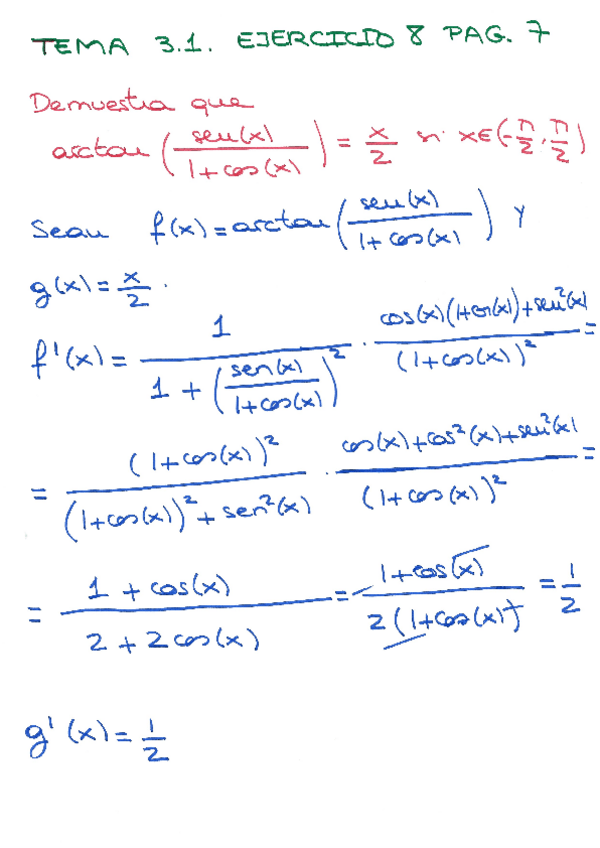 TEMA 3.1. EJERCICIO 8 PAG. 7
Demuestra que
arctan (sen(x) / (1+cos(x))) = x/2 si x∈(-π/2, π/2)
Sean f(x) = arctan (sen(x) / (1+cos(x))) y
g(x) = x/2 .
f'(x) = 1 / (1 + (sen(x) / (1+cos(x)))²) · (cos(x)(1+cos(x))+sen²(x)) / (1+cos(x))² =
= (1+cos(x))² / ((1+cos(x))² + sen²(x)) · (cos(x)+cos²(x)+sen²(x)) / (1+cos(x))² =
= (1 + cos(x)) / (2 + 2cos(x)) = (1+cos(x)) / (2(1+cos(x))) = 1/2
g'(x) = 1/2